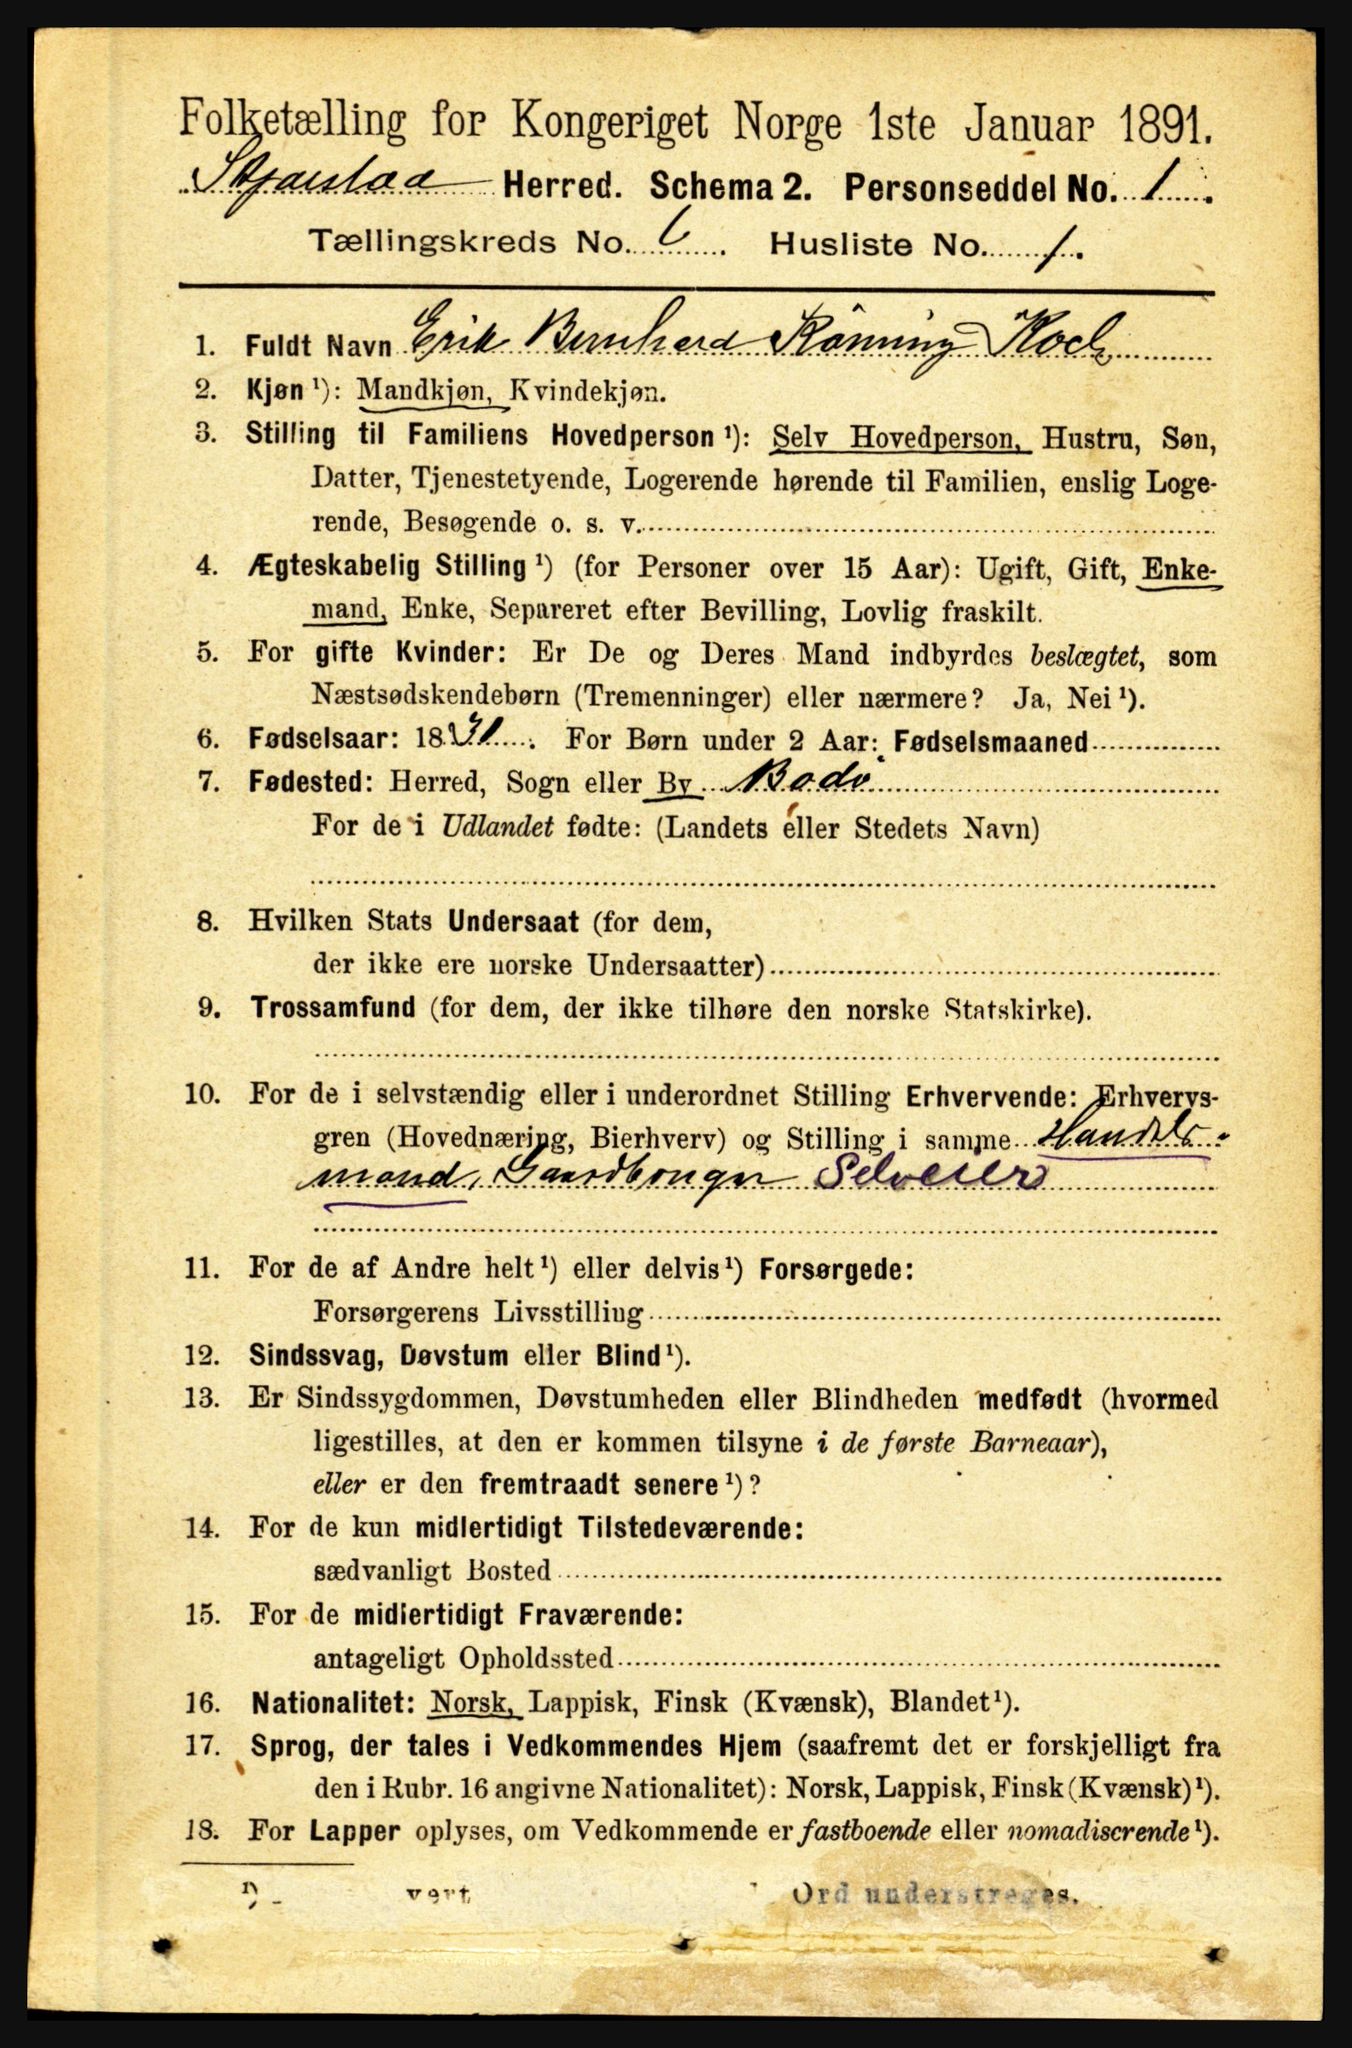 Folketælling for Kongeriget Norge 1ste Januar 1891.
Herred. Schema 2. Personseddel No. 1.
Tællingskreds No. 6. Husliste No. 1.
1. Fuldt Navn Erik Bernhard Rønning Koch
2. Kjøn ¹): Mandkjøn, Kvindekjøn.
3. Stilling til Familiens Hovedperson ¹): Selv Hovedperson, Hustru, Søn,
Datter, Tjenestetyende, Logerende hørende til Familien, enslig Loge-
rende, Besøgende o. s. v.
4. Ægteskabelig Stilling ¹) (for Personer over 15 Aar): Ugift, Gift, Enke-
mand, Enke, Separeret efter Bevilling, Lovlig fraskilt.
5. For gifte Kvinder: Er De og Deres Mand indbyrdes beslægtet, som
Næstsødskendebørn (Tremenninger) eller nærmere? Ja, Nei ¹).
6. Fødselsaar: 18 . For Børn under 2 Aar: Fødselsmaaned
7. Fødested: Herred, Sogn eller By Bodø
For de i Udlandet fødte: (Landets eller Stedets Navn)
8. Hvilken Stats Undersaat (for dem,
der ikke ere norske Undersaatter)
9. Trossamfund (for dem, der ikke tilhøre den norske Statskirke).
10. For de i selvstændig eller i underordnet Stilling Erhvervende: Erhvervs-
gren (Hovednæring, Bierhverv) og Stilling i samme Handels-
mand, Gaardbruger Selveier
11. For de af Andre helt ¹) eller delvis ¹) Forsørgede:
Forsørgerens Livsstilling
12. Sindssvag, Døvstum eller Blind ¹).
13. Er Sindssygdommen, Døvstumheden eller Blindheden medfødt (hvormed
ligestilles, at den er kommen tilsyne i de første Barneaar),
eller er den fremtraadt senere ¹)?
14. For de kun midlertidigt Tilstedeværende:
sædvanligt Bosted
15. For de midlertidigt Fraværende:
antageligt Opholdssted
16. Nationalitet: Norsk, Lappisk, Finsk (Kvænsk), Blandet ¹).
17. Sprog, der tales i Vedkommendes Hjem (saafremt det er forskjelligt fra
den i Rubr. 16 angivne Nationalitet): Norsk, Lappisk, Finsk (Kvænsk) ¹).
18. For Lapper oplyses, om Vedkommende er fastboende eller nomadiserende ¹).
Ord understreges.